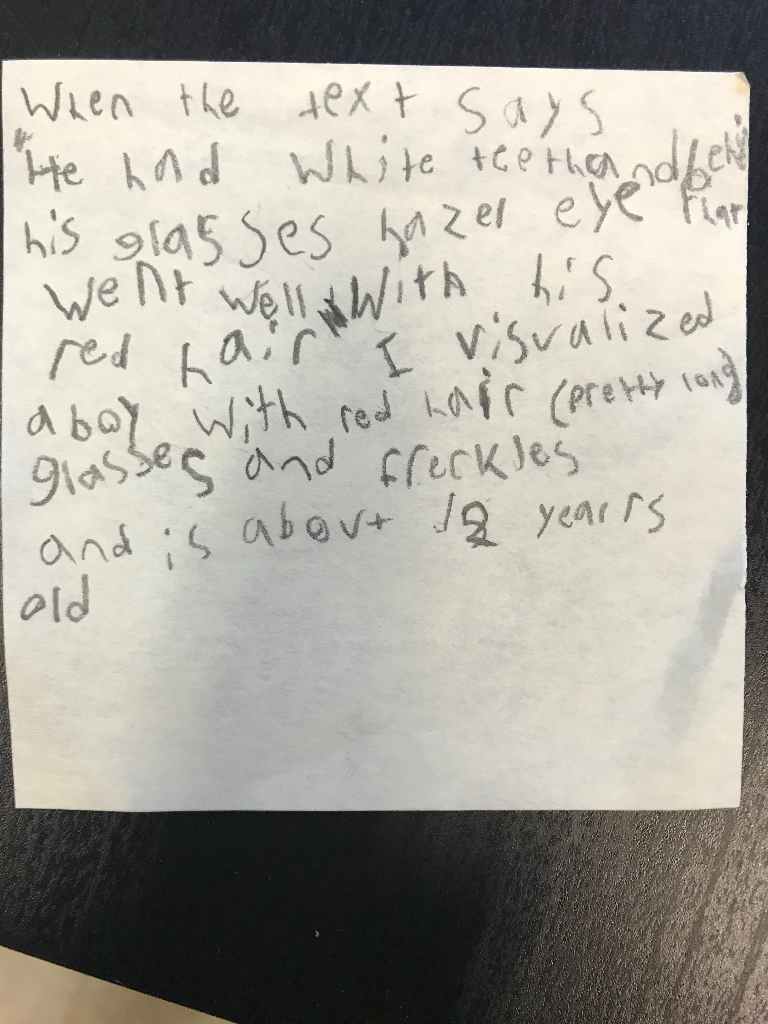 When the text says
"He had white teeth and behi
his glasses hazel eye that
went well with his
red hair" I visualized
a boy with red hair (pretty long)
glasses and freckles
and is about 12 yearrs
old